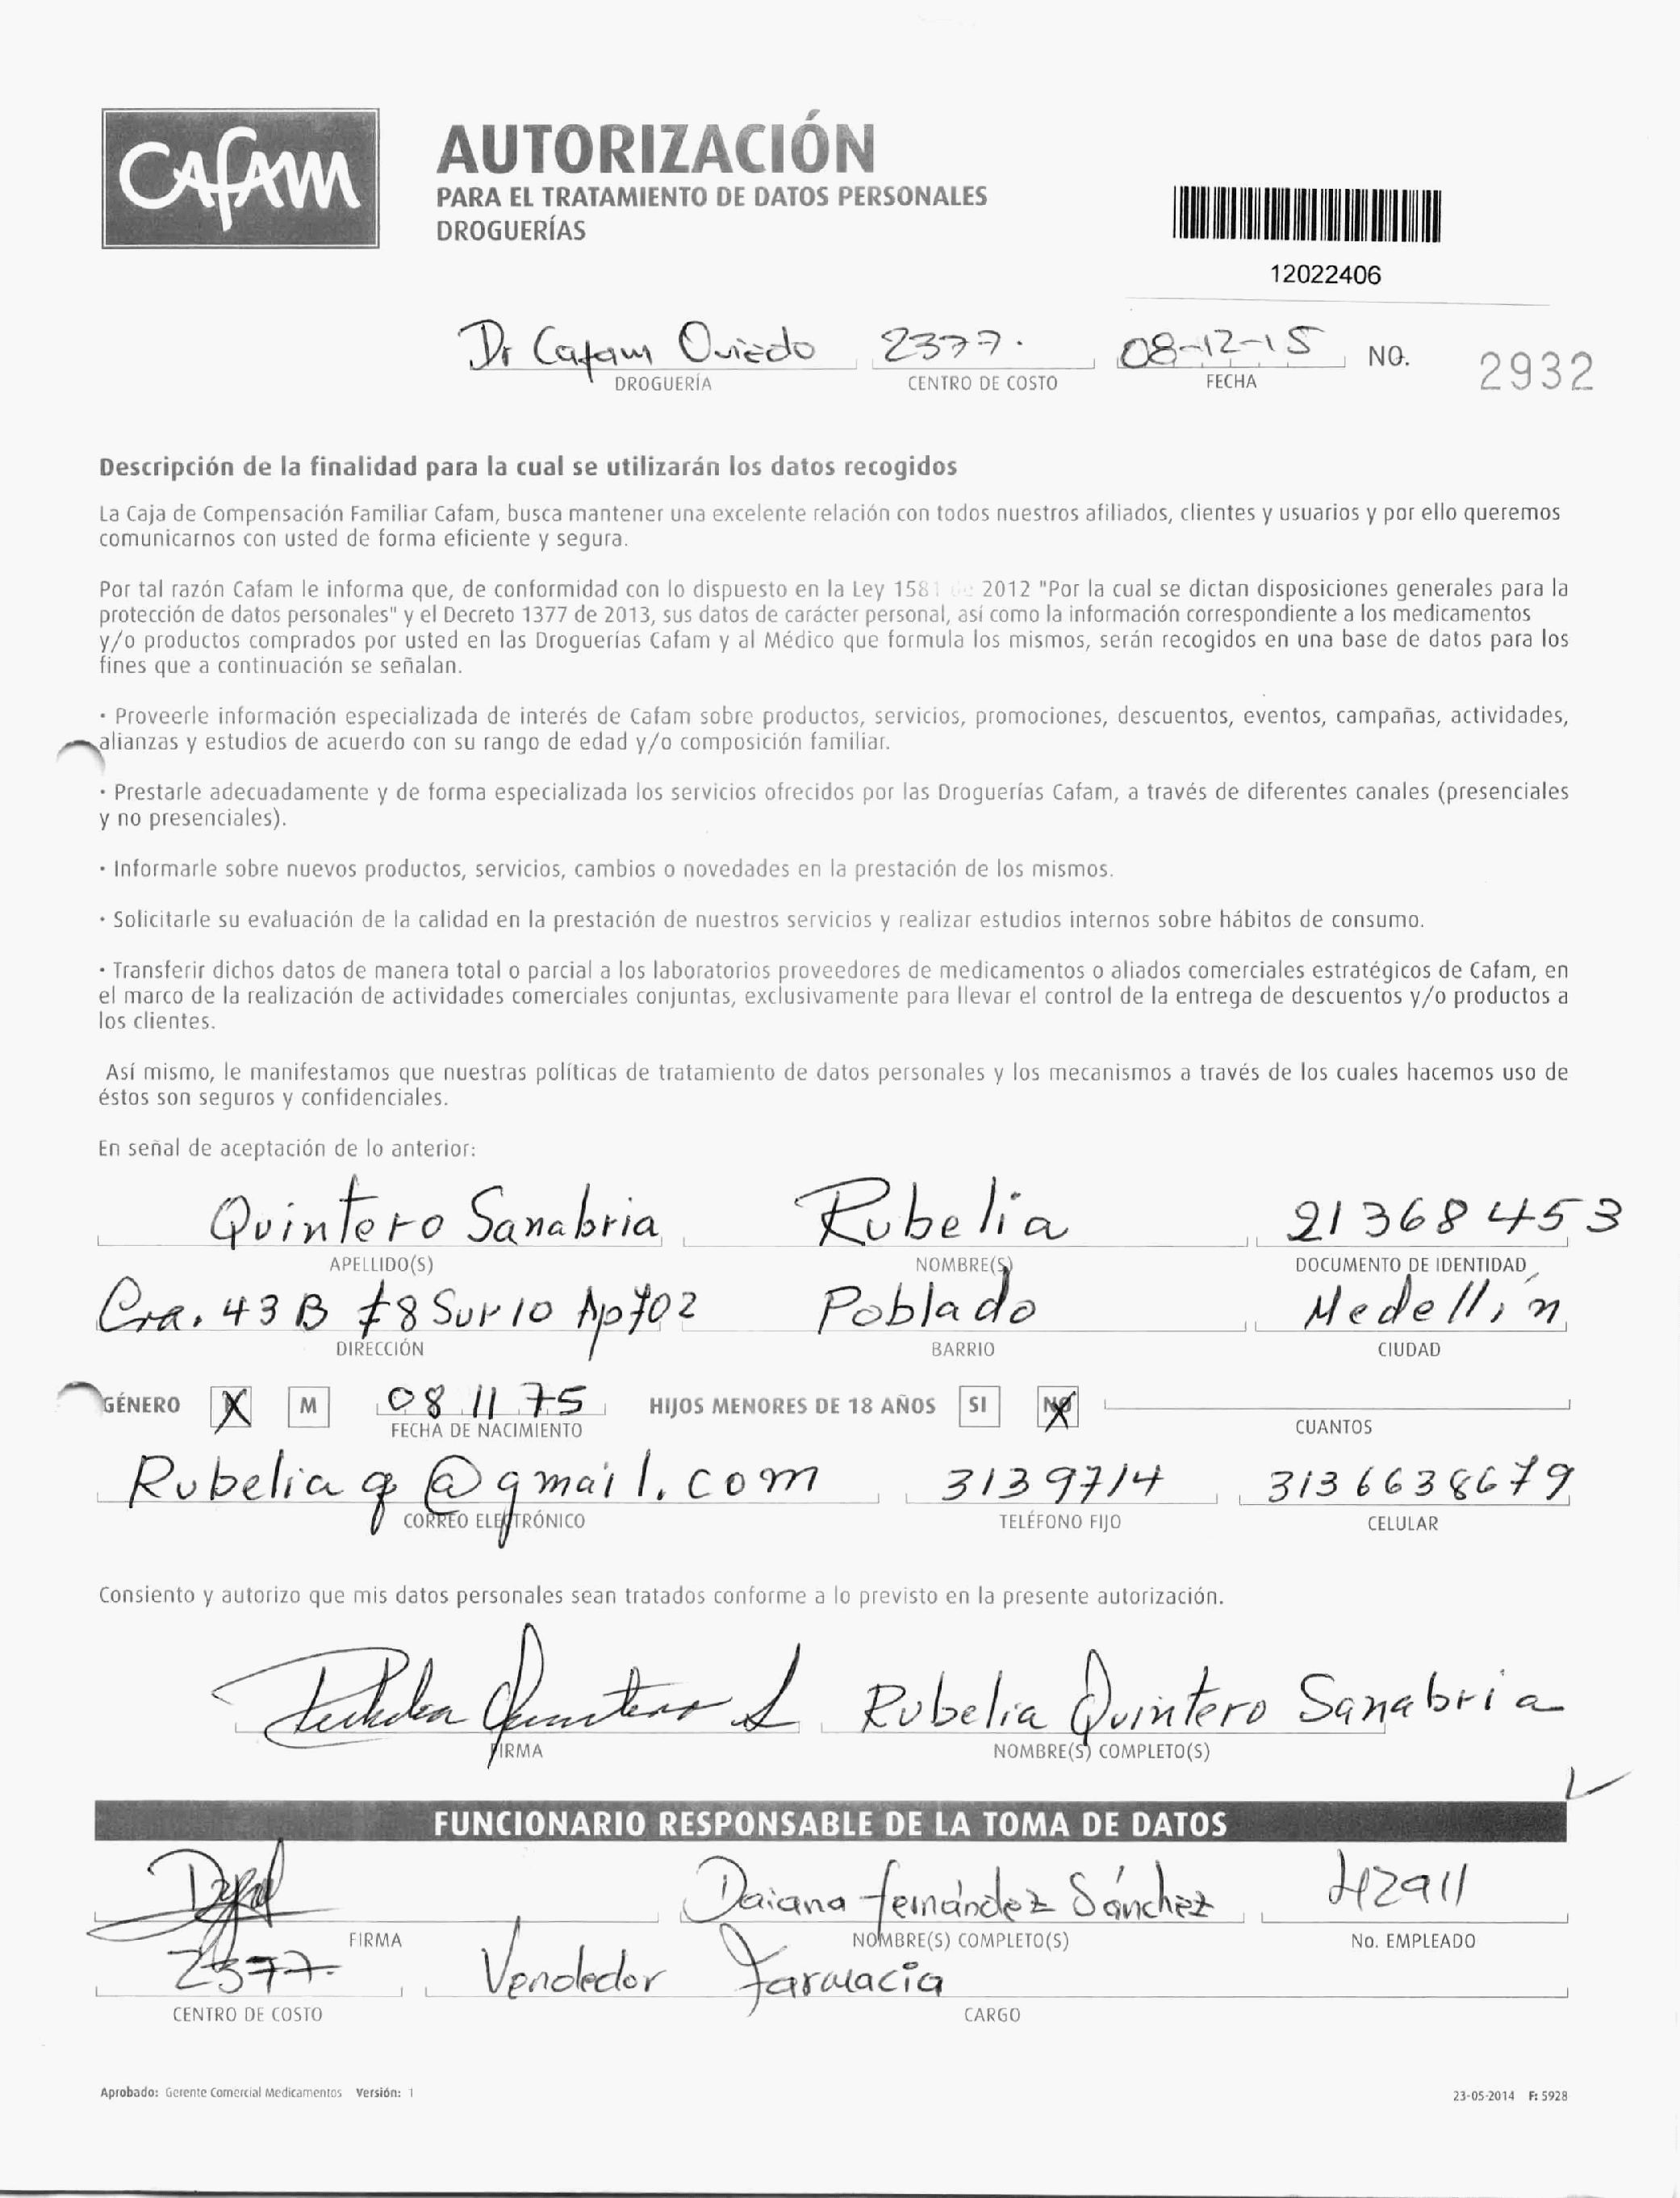 CAFAM
AUTORIZACIÓN
PARA EL TRATAMIENTO DE DATOS PERSONALES
DROGUERÍAS
12022406
Dr Cafam Oviedo 2377. 08-12-15 NO. 2932
DROGUERÍA CENTRO DE COSTO FECHA
Descripción de la finalidad para la cual se utilizarán los datos recogidos
La Caja de Compensación Familiar Cafam, busca mantener una excelente relación con todos nuestros afiliados, clientes y usuarios y por ello queremos
comunicarnos con usted de forma eficiente y segura.
Por tal razón Cafam le informa que, de conformidad con lo dispuesto en la Ley 1581 de 2012 "Por la cual se dictan disposiciones generales para la
protección de datos personales" y el Decreto 1377 de 2013, sus datos de carácter personal, así como la información correspondiente a los medicamentos
y/o productos comprados por usted en las Droguerías Cafam y al Médico que formula los mismos, serán recogidos en una base de datos para los
fines que a continuación se señalan.
· Proveerle información especializada de interés de Cafam sobre productos, servicios, promociones, descuentos, eventos, campañas, actividades,
alianzas y estudios de acuerdo con su rango de edad y/o composición familiar.
· Prestarle adecuadamente y de forma especializada los servicios ofrecidos por las Droguerías Cafam, a través de diferentes canales (presenciales
y no presenciales).
· Informarle sobre nuevos productos, servicios, cambios o novedades en la prestación de los mismos.
· Solicitarle su evaluación de la calidad en la prestación de nuestros servicios y realizar estudios internos sobre hábitos de consumo.
· Transferir dichos datos de manera total o parcial a los laboratorios proveedores de medicamentos o aliados comerciales estratégicos de Cafam, en
el marco de la realización de actividades comerciales conjuntas, exclusivamente para llevar el control de la entrega de descuentos y/o productos a
los clientes.
Así mismo, le manifestamos que nuestras políticas de tratamiento de datos personales y los mecanismos a través de los cuales hacemos uso de
éstos son seguros y confidenciales.
En señal de aceptación de lo anterior:
Quintero Sanabria Rubelia 21368453
APELLIDO(S) NOMBRE(S) DOCUMENTO DE IDENTIDAD
Cra. 43 B #8 Sur 10 Ap 702 Poblado Medellín
DIRECCIÓN BARRIO CIUDAD
GÉNERO X M 08 11 75 HIJOS MENORES DE 18 AÑOS SI NO
FECHA DE NACIMIENTO CUANTOS
Rubelia q @gmail.com 3139714 3136638679
CORREO ELECTRÓNICO TELÉFONO FIJO CELULAR
Consiento y autorizo que mis datos personales sean tratados conforme a lo previsto en la presente autorización.
Rubelia Quintero S Rubelia Quintero Sanabria
FIRMA NOMBRE(S) COMPLETO(S)
FUNCIONARIO RESPONSABLE DE LA TOMA DE DATOS
Daiana Fernández Sánchez 42911
FIRMA NOMBRE(S) COMPLETO(S) No. EMPLEADO
2377. Vendedor Farmacia
CENTRO DE COSTO CARGO
Aprobado: Gerente Comercial Medicamentos Versión: 1 23-05-2014 F: 5928